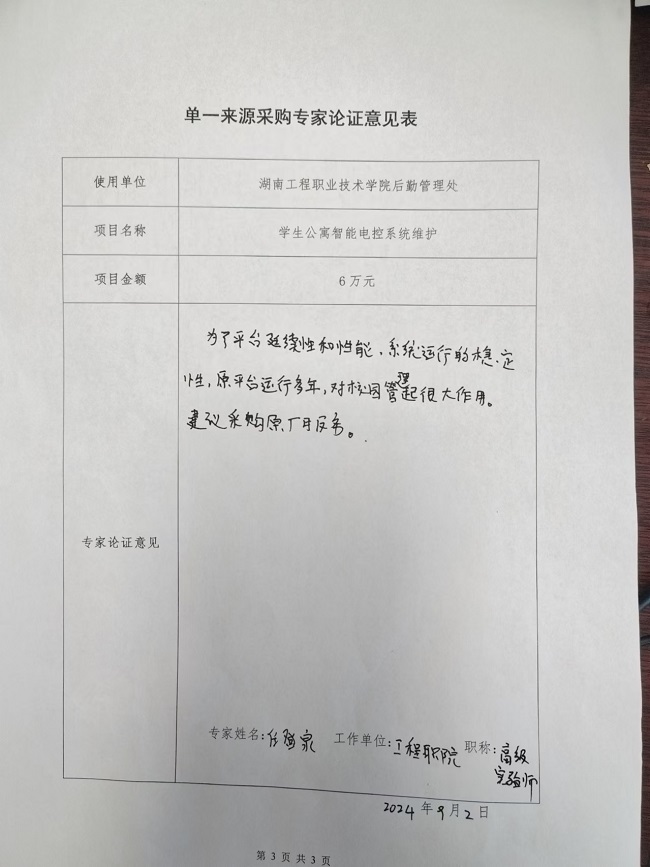 单一来源采购专家论证意见表
使用单位 湖南工程职业技术学院后勤管理处
项目名称 学生公寓智能电控系统维护
项目金额 6万元
专家论证意见
为了平台延续性和性能、系统运行的稳定
性,原平台运行多年,对校园管理起很大作用。
建议采购原厂服务。
专家姓名:任 泉 工作单位:工程职院 职称:高级
实验师
2024年9月2日
第 3 页 共 3 页